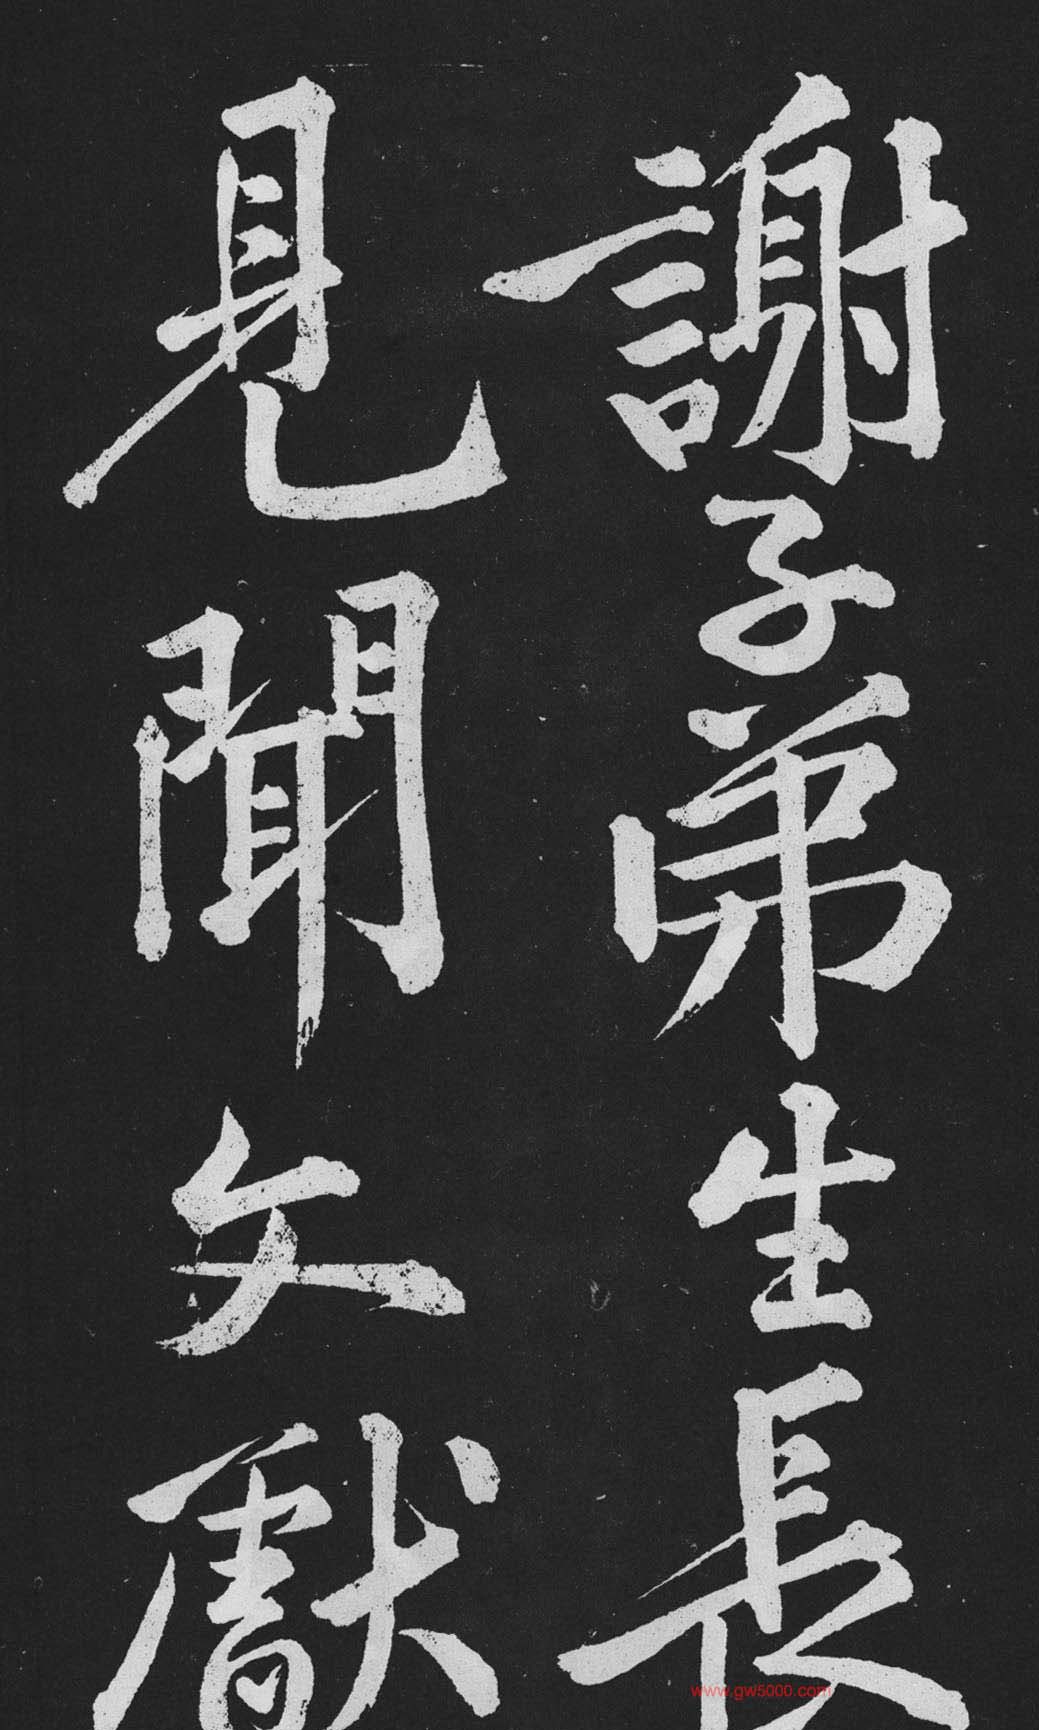 謝子弟生長
見聞文獻
www.gw5000.com